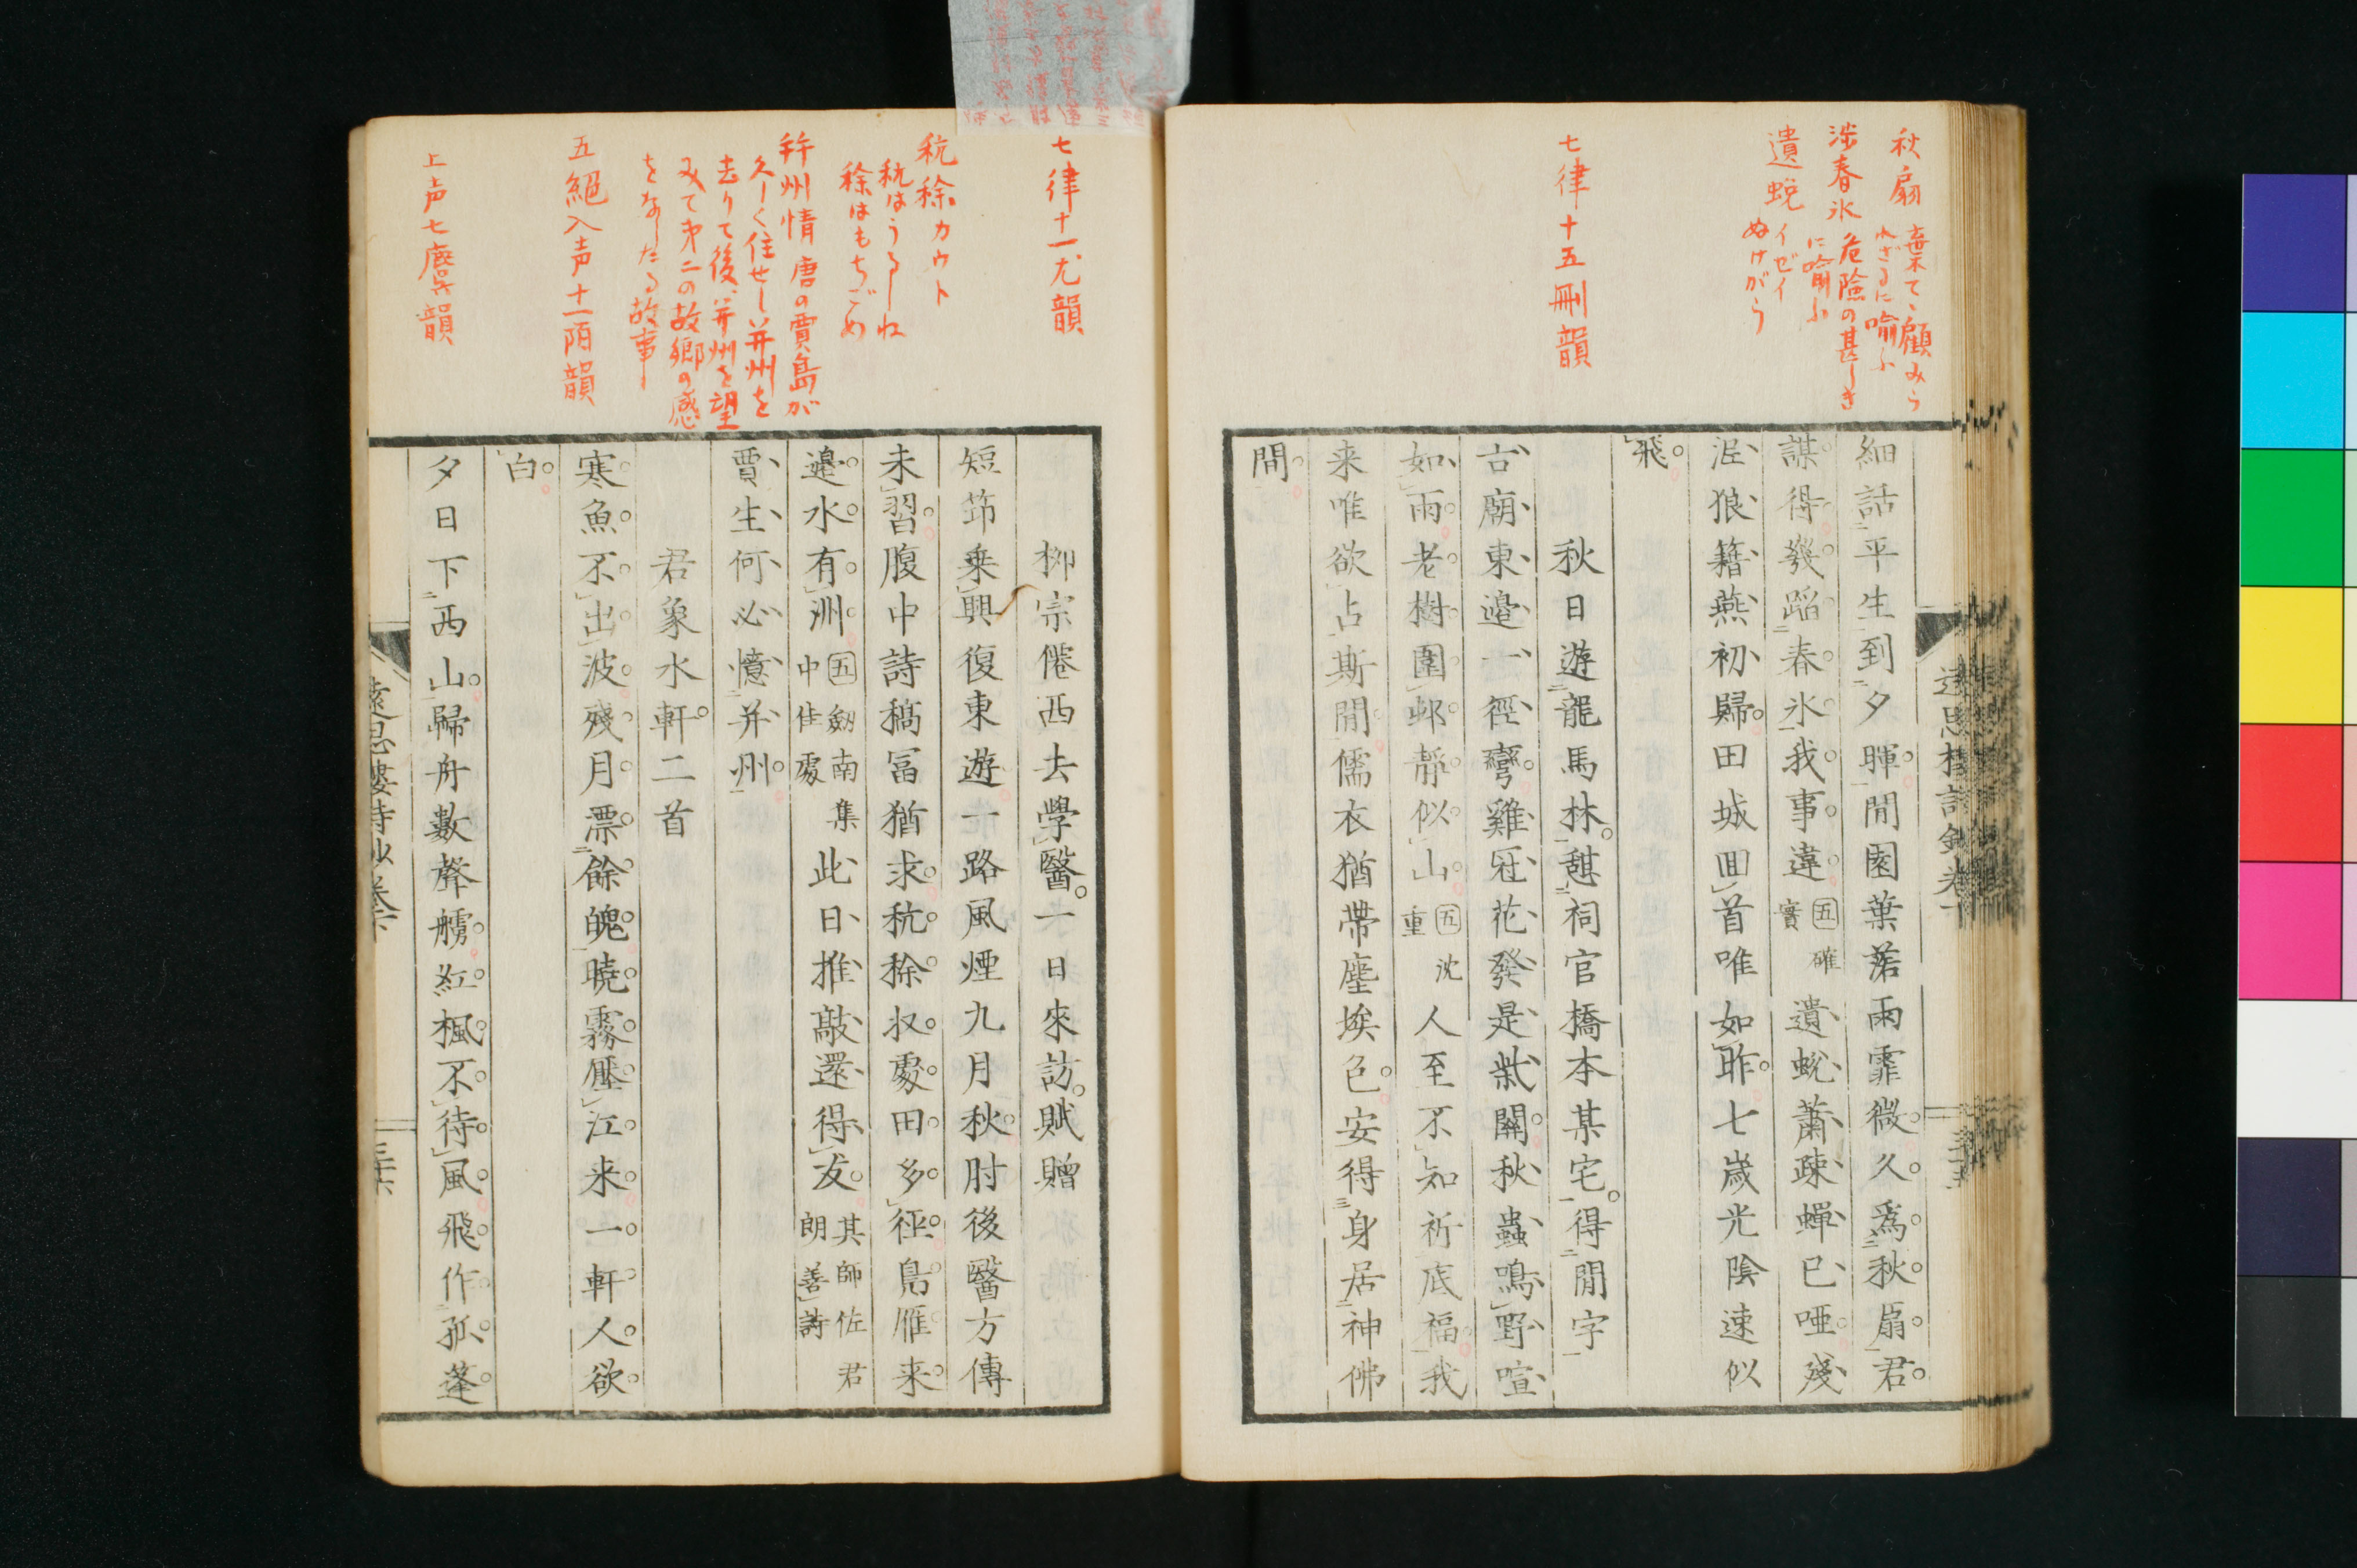 秋扇 棄てゝ顧みら
れざるに喩ふ
渉春氷 危険の甚しき
に喩ふ
遺蛻 イゼイ
ぬけがら
七律十五刪韻
細話平生到夕暉。閒園葉落雨霏微。久爲秋扇。君
謀得發蹈春氷。我事違。五確實遺蛻蕭疎蟬已啞。殘
泥狼籍燕初歸。田城回首唯如昨。七歳光陰速似
飛。
秋日遊龍馬林。憩祠官橋本某宅。得閒字
古廟東邉一徑彎。雞冠花發是柴關。秋蟲鳴野喧
如雨。老樹圍邨靜似山。五沈重人至不知祈底福。我
来唯欲占斯閒。儒衣猶帶塵埃色。安得身居神佛
間。
遠思樓詩鈔卷下
七律十一尤韻
秔稌 カウト
秔はうるしね
稌はもちごめ
幷州情 唐の賈島が
久しく住せし并州を
去りて後、并州を望
みて第二の故郷の感
をなしたる故事
五絕入声十一陌韻
上声七麌韻
柳宗僊西去學醫。一日來訪。賦贈
短笻乗興復東遊。一路風煙九月秋。肘後醫方傳
未習。腹中詩稿冨猶求。秔稌収處田多徑。鳧雁来
邉水有洲。五劒南集中佳處此日推敲還得友。其師佐君朗善詩
賈生何必憶并州。
君象水軒二首
寒魚不出波。殘月漂餘魄。曉霧壓江来。一軒人欲
白。
夕日下西山。歸舟數聲艣。紅楓不待風。飛作孤蓬
遠思樓詩鈔卷下
三十六